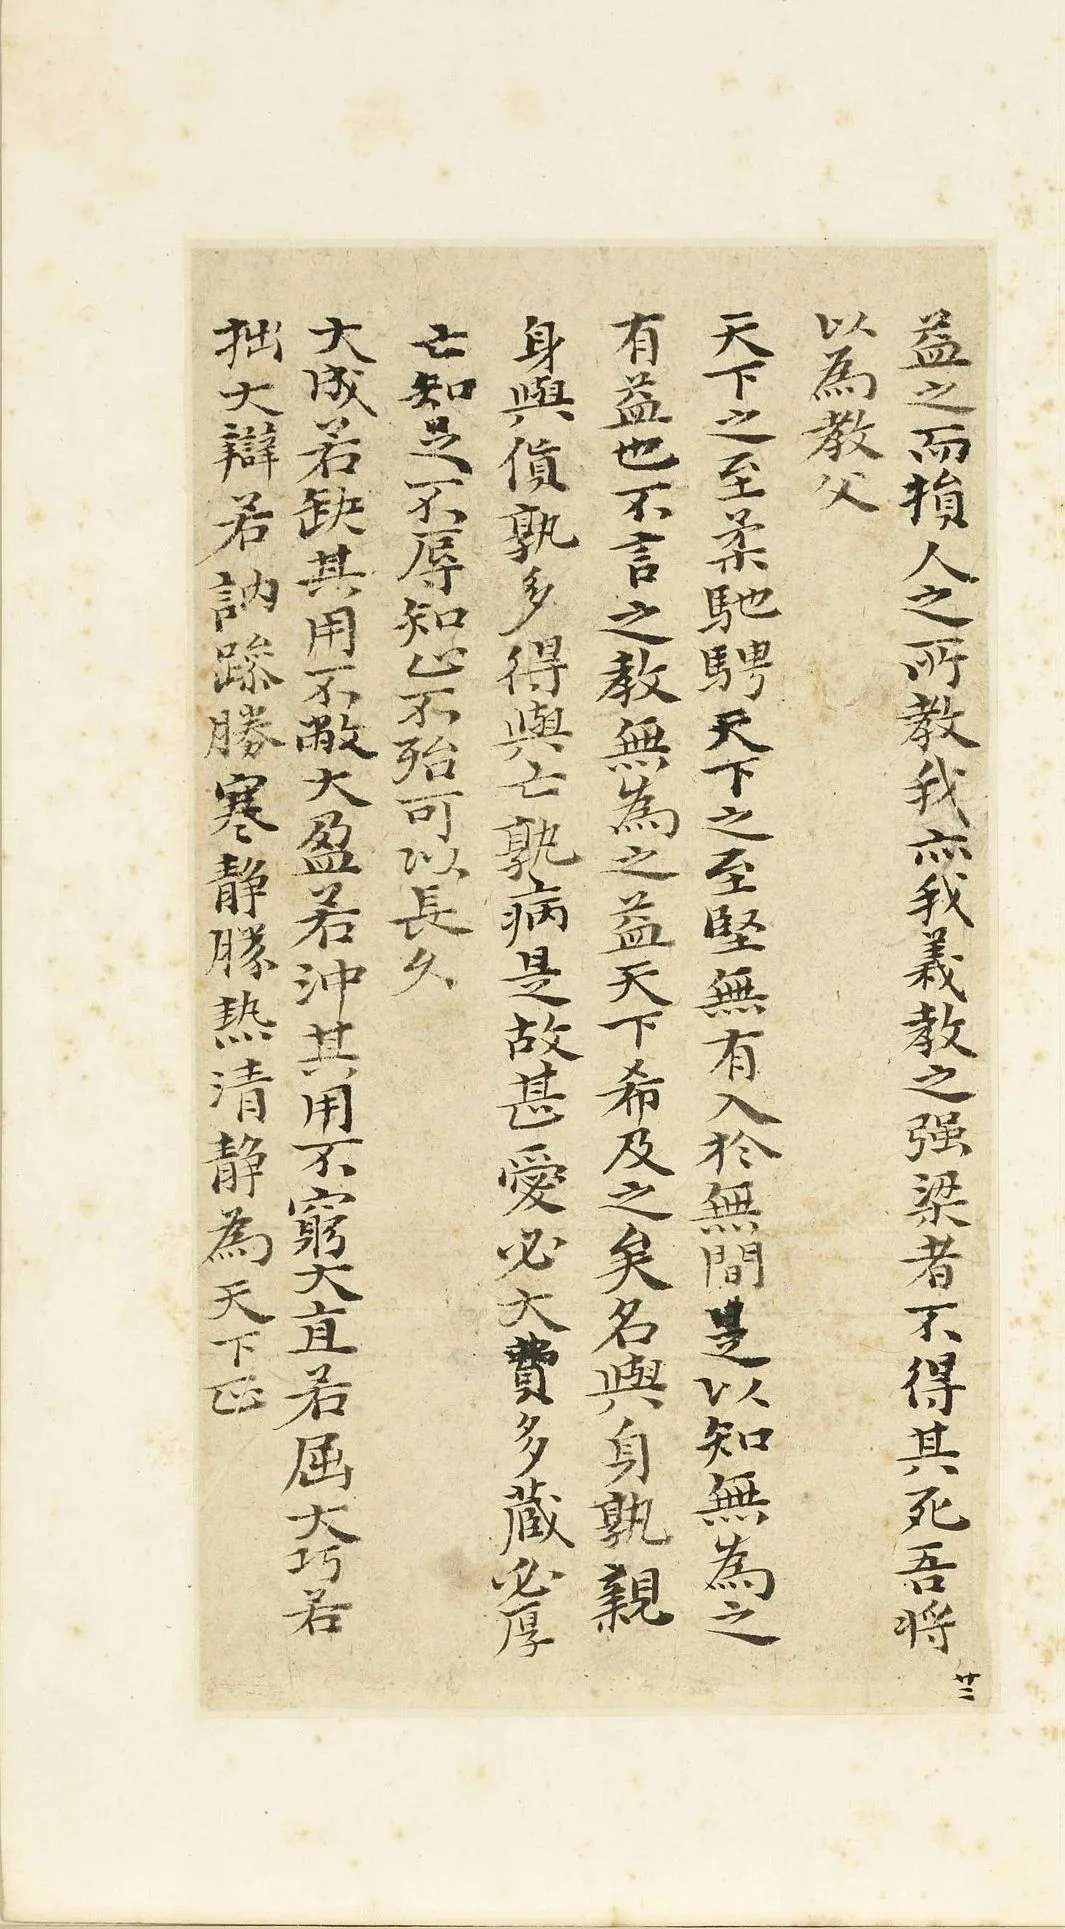 益之而損人之所教我亦我義教之强梁者不得其死吾将
以為教父
天下之至柔馳騁天下之至堅無有入於無間是以知無為之
有益也不言之教無為之益天下希及之矣名與身孰親
身與貨孰多得與亡孰病是故甚愛必大費多藏必厚
亡知足不辱知止不殆可以長久
大成若缺其用不敝大盈若沖其用不窮大直若屈大巧若
拙大辯若訥躁勝寒静勝热清静為天下正
廿二